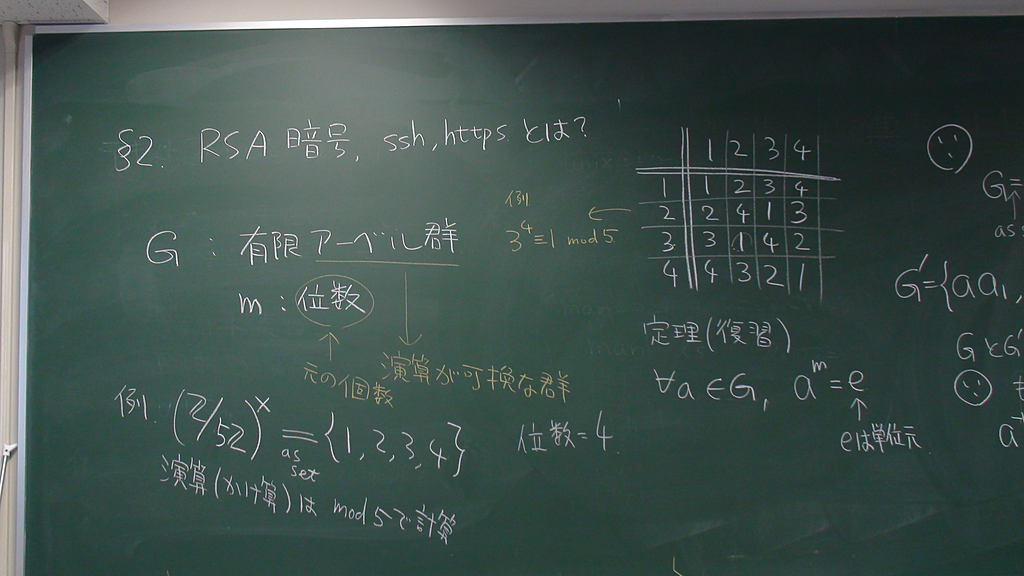 §2. RSA 暗号, ssh, https とは?
G : 有限アーベル群
m : 位数
元の個数
演算が可換な群
例. (Z/5Z)^× = {1, 2, 3, 4} 位数 = 4
as set
演算(かけ算)は mod 5 で計算
例
3^4 ≡ 1 mod 5 ←
1 2 3 4
1 1 2 3 4
2 2 4 1 3
3 3 1 4 2
4 4 3 2 1
定理(復習)
∀a ∈ G, a^m = e
eは単位元
G =
as s
G' = {a a₁,
G と G'
a